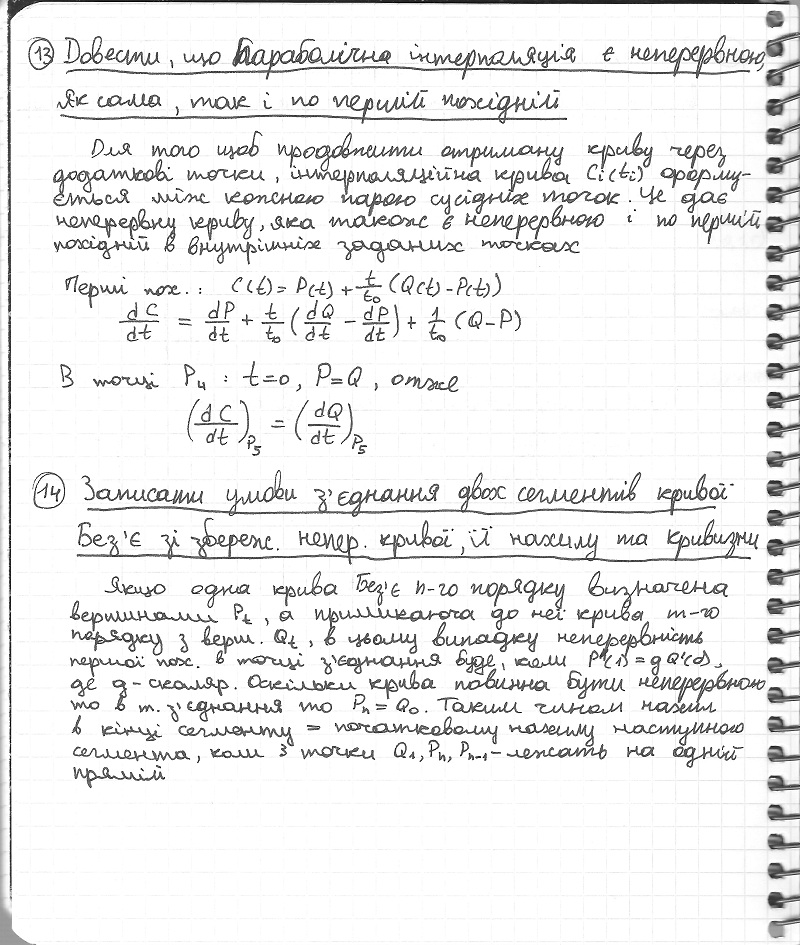 13 Довести, що параболічна інтерполяція є неперервною,
як сама, так і по першій похідній
Для того щоб продовжити отриману криву через
додаткові точки, інтерполяційна крива Ci(ti) форму-
ється між кожною парою сусідніх точок. Це дає
неперервну криву, яка також є неперервною і по першій
похідній в внутрішніх заданих точках
Перші пох.: C(t) = P(t) + t/t₀ (Q(t) - P(t))
dC/dt = dP/dt + t/t₀ (dQ/dt - dP/dt) + 1/t₀ (Q-P)
В точці P₄ : t=0, P=Q, отже
(dC/dt)P₅ = (dQ/dt)P₅
14 Записати умови з'єднання двох сегментів кривої
Без'є зі збереж. непер. кривої, її нахилу та кривизни
Якщо одна крива Без'є n-го порядку визначена
вершинами Pt, а примикаюча до неї крива m-го
порядку з верш. Qt, в цьому випадку неперервність
першої пох. в точці з'єднання буде, коли P'(1) = gQ'(0),
де g-скаляр. Оскільки крива повинна бути неперервною
то в т. з'єднання то Pn = Q₀. Таким чином нахил
в кінці сегменту = початковому нахилу наступного
сегмента, коли 3 точки Q₁, Pn, Pn-1 - лежать на одній
прямій